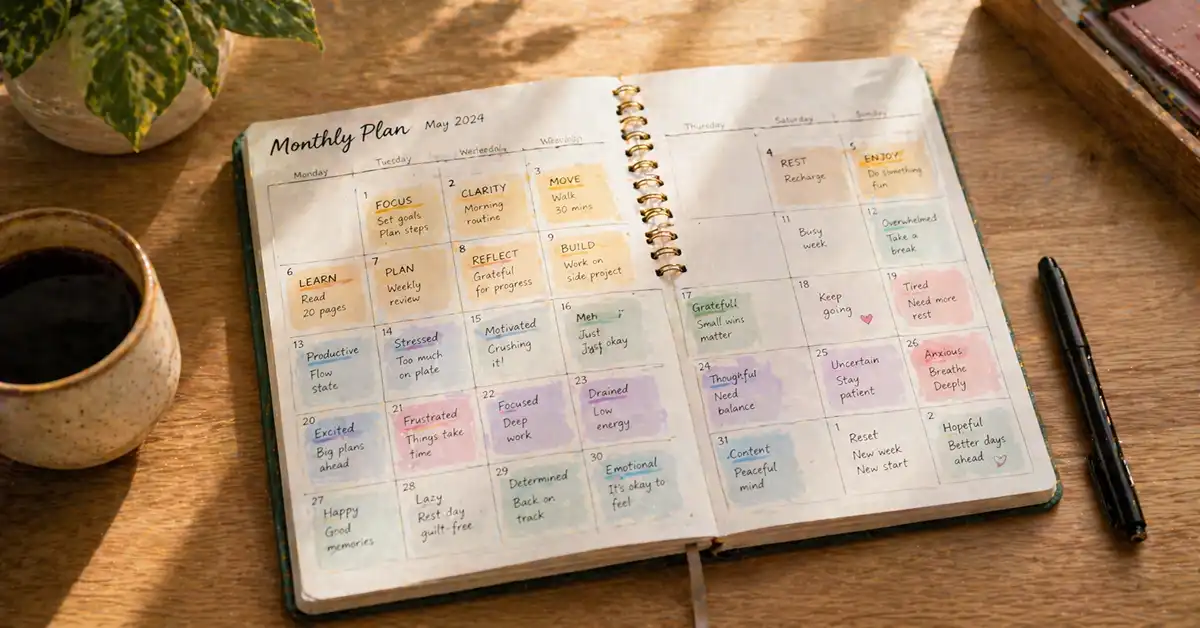 Monthly Plan May 2024
Monday
Tuesday
1
FOCUS
Set goals
Plan steps
2
CLARITY
Morning
routine
3
MOVE
Walk
30 mins
6
LEARN
Read
20 pages
7
PLAN
Weekly
review
8
REFLECT
Grateful
for progress
9
BUILD
Work on
side project
13
Productive
Flow
state
14
Stressed
Too much
on plate
15
Motivated
Crushing
it!
16
Meh
Just
Just okay
20
Excited
Big plans
ahead
21
Frustrated
Things take
time
22
Focused
Deep
work
23
Drained
Low
energy
27
Happy
Good
memories
28
Lazy
Rest day
guilt-free
29
Determined
Back on
track
30
Emotional
It's okay to
feel
Thursday
Saturday
Sunday
4
REST
Recharge
5
ENJOY
Do something
fun
11
Busy
week
12
Overwhelmed
Take a
break
17
Gratefull
Small wins
matter
18
Keep
going
19
Tired
Need more
rest
24
Thoughful
Need
balance
25
Uncertain
Stay
patient
26
Anxious
Breathe
Deeply
31
Content
Peaceful
mind
1
Reset
New week
New start
2
Hopeful
Better days
ahead